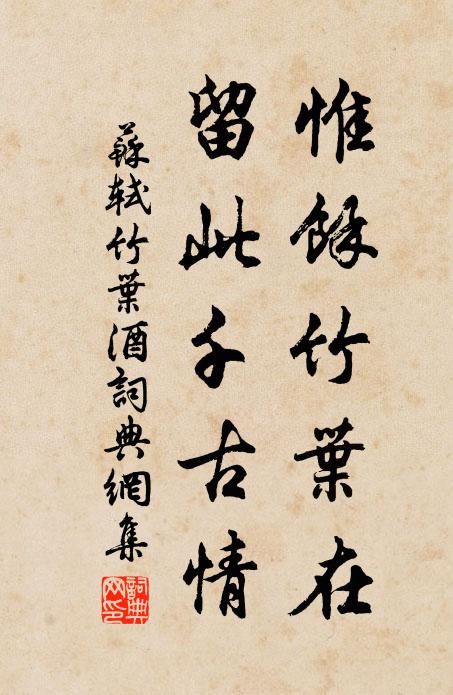 惟餘竹葉在
留此千古情
蘇軾竹葉酒詞典網集
詞典